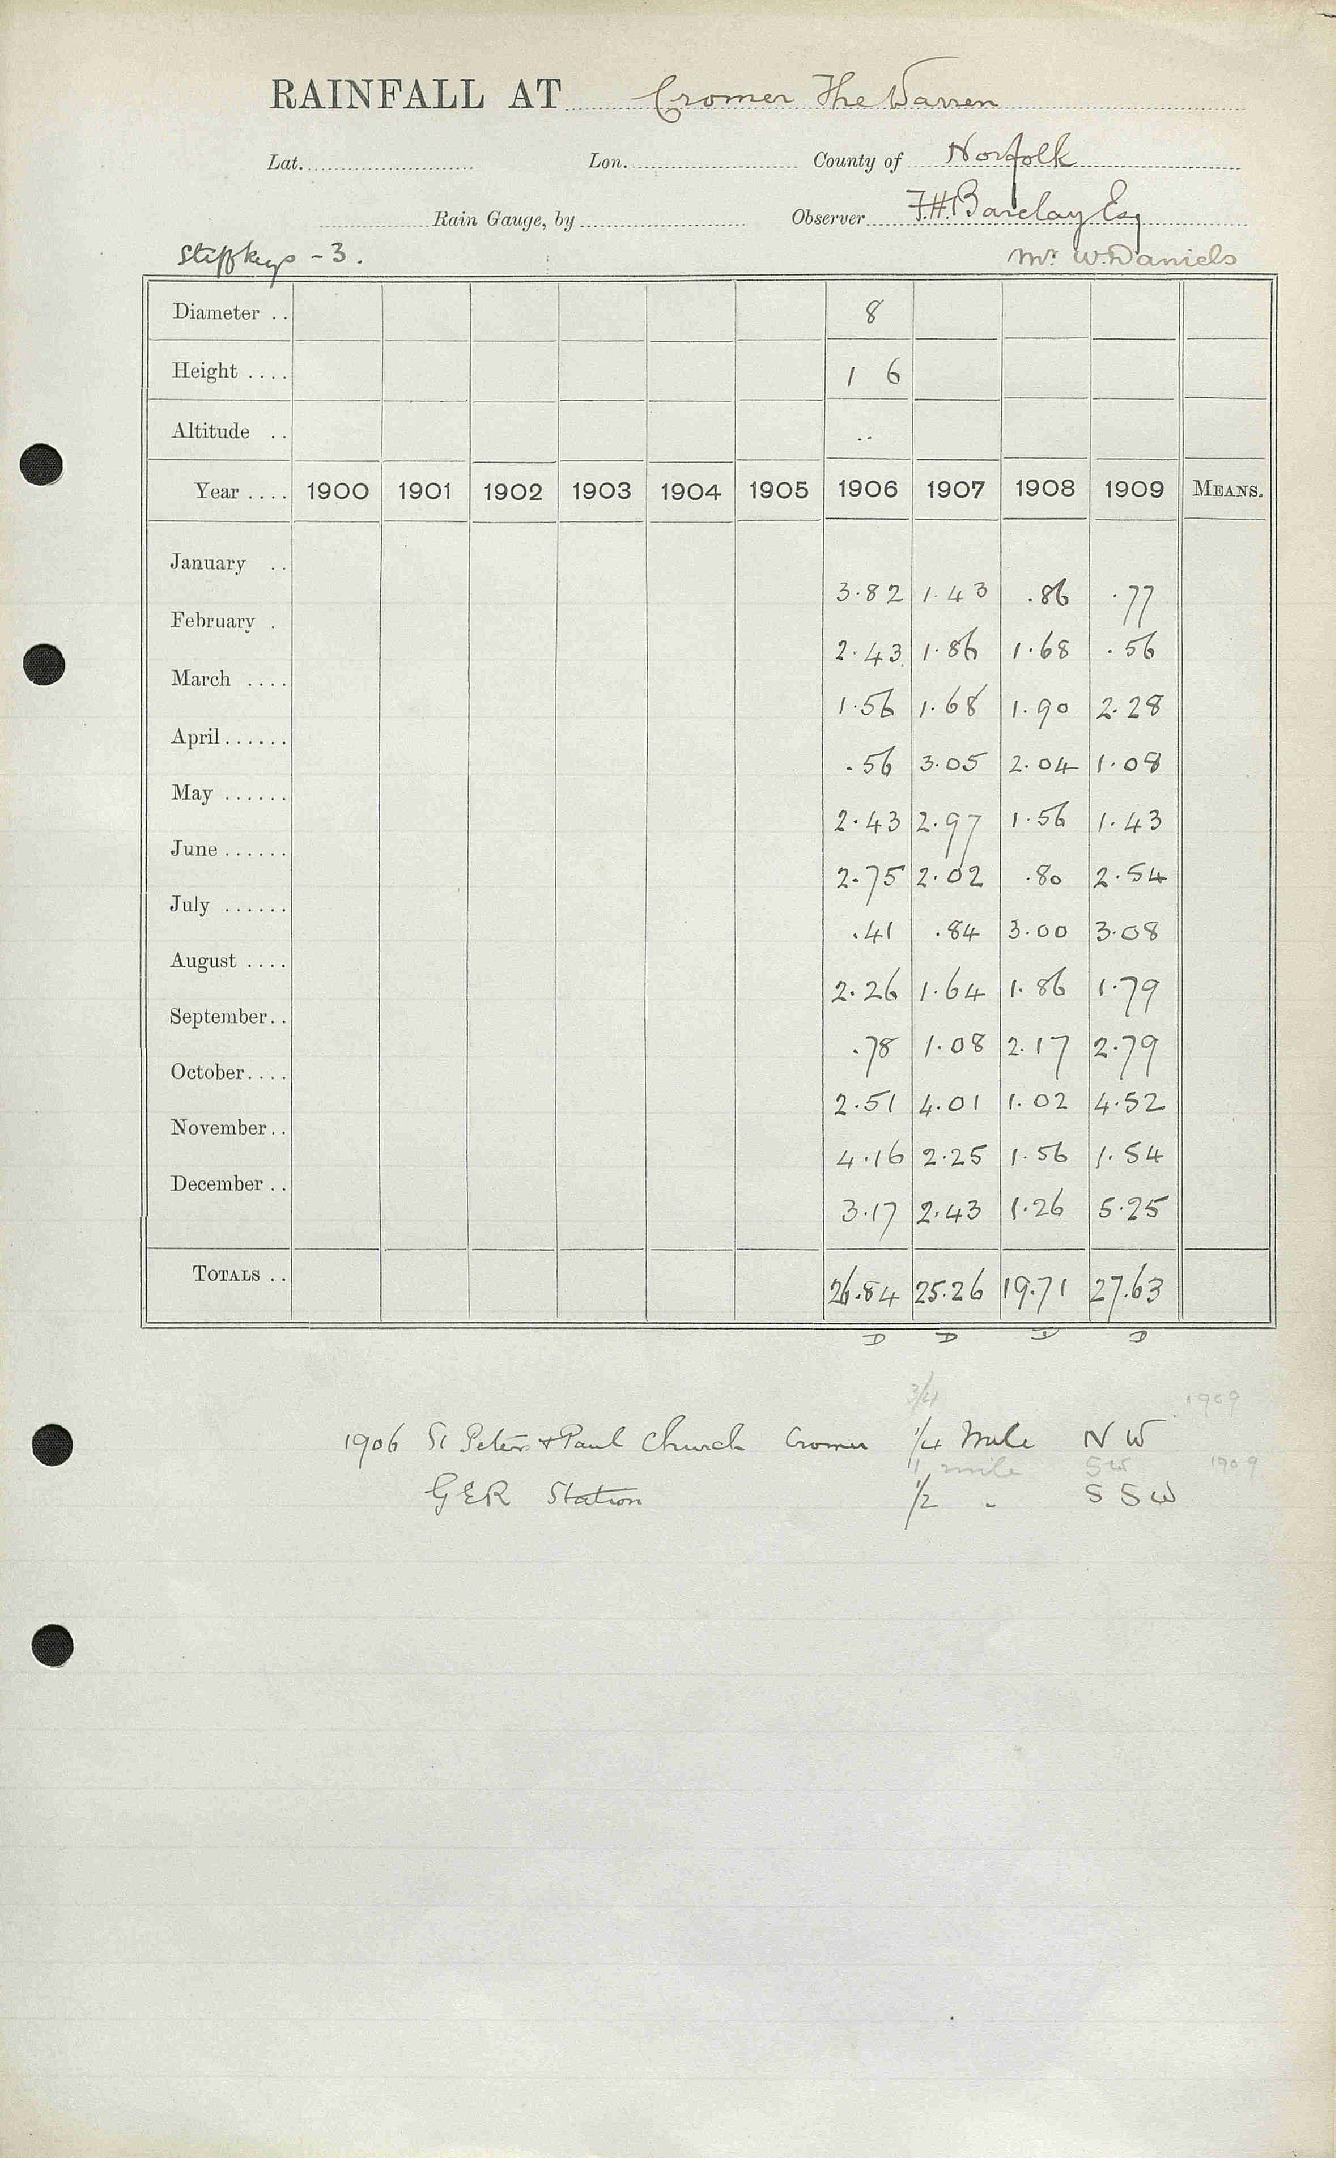 RAINFALL AT Cromer The Warren
Lat. Lon. County of Norfolk
Rain Gauge, by Observer F.H. Barclay Esq
Stiffkey - 3. Mr W. Daniels
Diameter .. 8
Height .... 1 6
Altitude .. ..
Year .... 1900 1901 1902 1903 1904 1905 1906 1907 1908 1909 MEANS.
January .. 3.82 1.43 .86 .77
February . 2.43 1.86 1.68 .56
March .... 1.56 1.68 1.90 2.28
April...... .56 3.05 2.04 1.08
May ...... 2.43 2.97 1.56 1.43
June ...... 2.75 2.02 .80 2.54
July ...... .41 .84 3.00 3.08
August .... 2.26 1.64 1.86 1.79
September.. .78 1.08 2.17 2.79
October.... 2.51 4.01 1.02 4.52
November.. 4.16 2.25 1.56 1.54
December .. 3.17 2.43 1.26 5.25
TOTALS .. 26.84 25.26 19.71 27.63
D D D D
3/4 1909
1906 St Peter & Paul Church Cromer 1/4 Mile NW
11 mile SW 1909
GER Station 1/2 " SSW